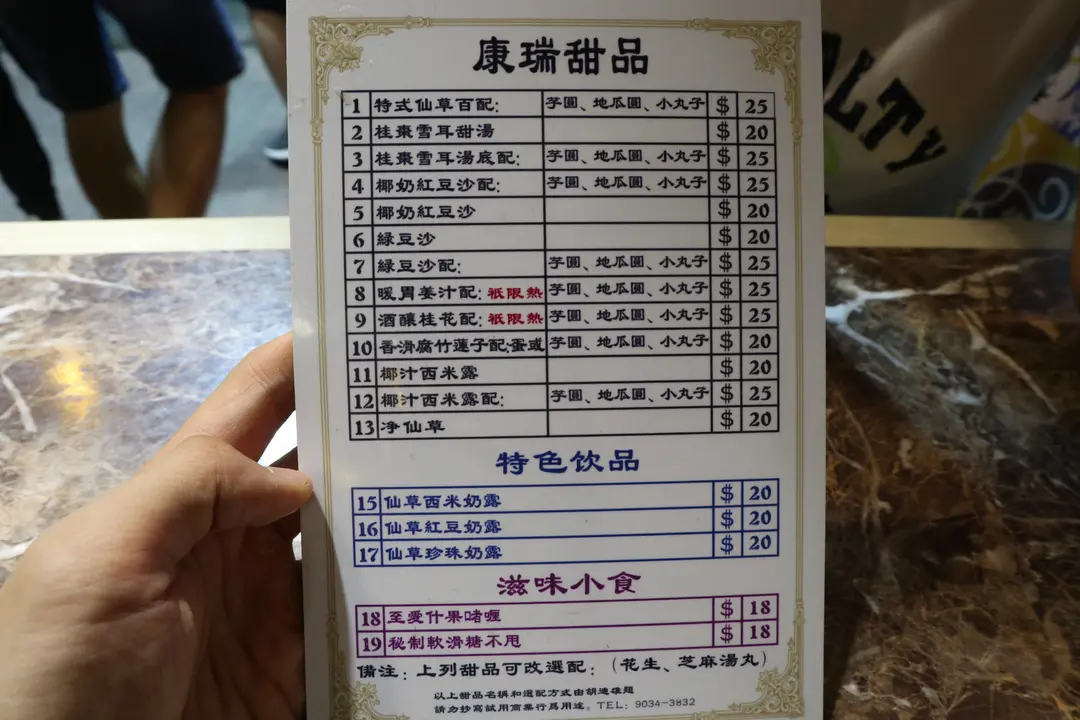 康瑞甜品
1 特式仙草百配: 芋圓、地瓜圓、小丸子 $ 25
2 桂棗雪耳甜湯 $ 20
3 桂棗雪耳湯底配: 芋圓、地瓜圓、小丸子 $ 25
4 椰奶紅豆沙配: 芋圓、地瓜圓、小丸子 $ 25
5 椰奶紅豆沙 $ 20
6 綠豆沙 $ 20
7 綠豆沙配: 芋圓、地瓜圓、小丸子 $ 25
8 暖胃姜汁配: 祇限熱 芋圓、地瓜圓、小丸子 $ 25
9 酒釀桂花配: 祇限熱 芋圓、地瓜圓、小丸子 $ 25
10 香滑腐竹蓮子配:蛋或 芋圓、地瓜圓、小丸子 $ 20
11 椰汁西米露 $ 20
12 椰汁西米露配: 芋圓、地瓜圓、小丸子 $ 25
13 净仙草 $ 20
特色饮品
15 仙草西米奶露 $ 20
16 仙草紅豆奶露 $ 20
17 仙草珍珠奶露 $ 20
滋味小食
18 至愛什果啫喱 $ 18
19 秘制軟滑糖不甩 $ 18
備注: 上列甜品可改選配: (花生、芝麻湯丸)
以上甜品名稱和選配方式由胡達雄題
請勿抄寫試用商業行爲用途。TEL: 9034-3832
ALTY